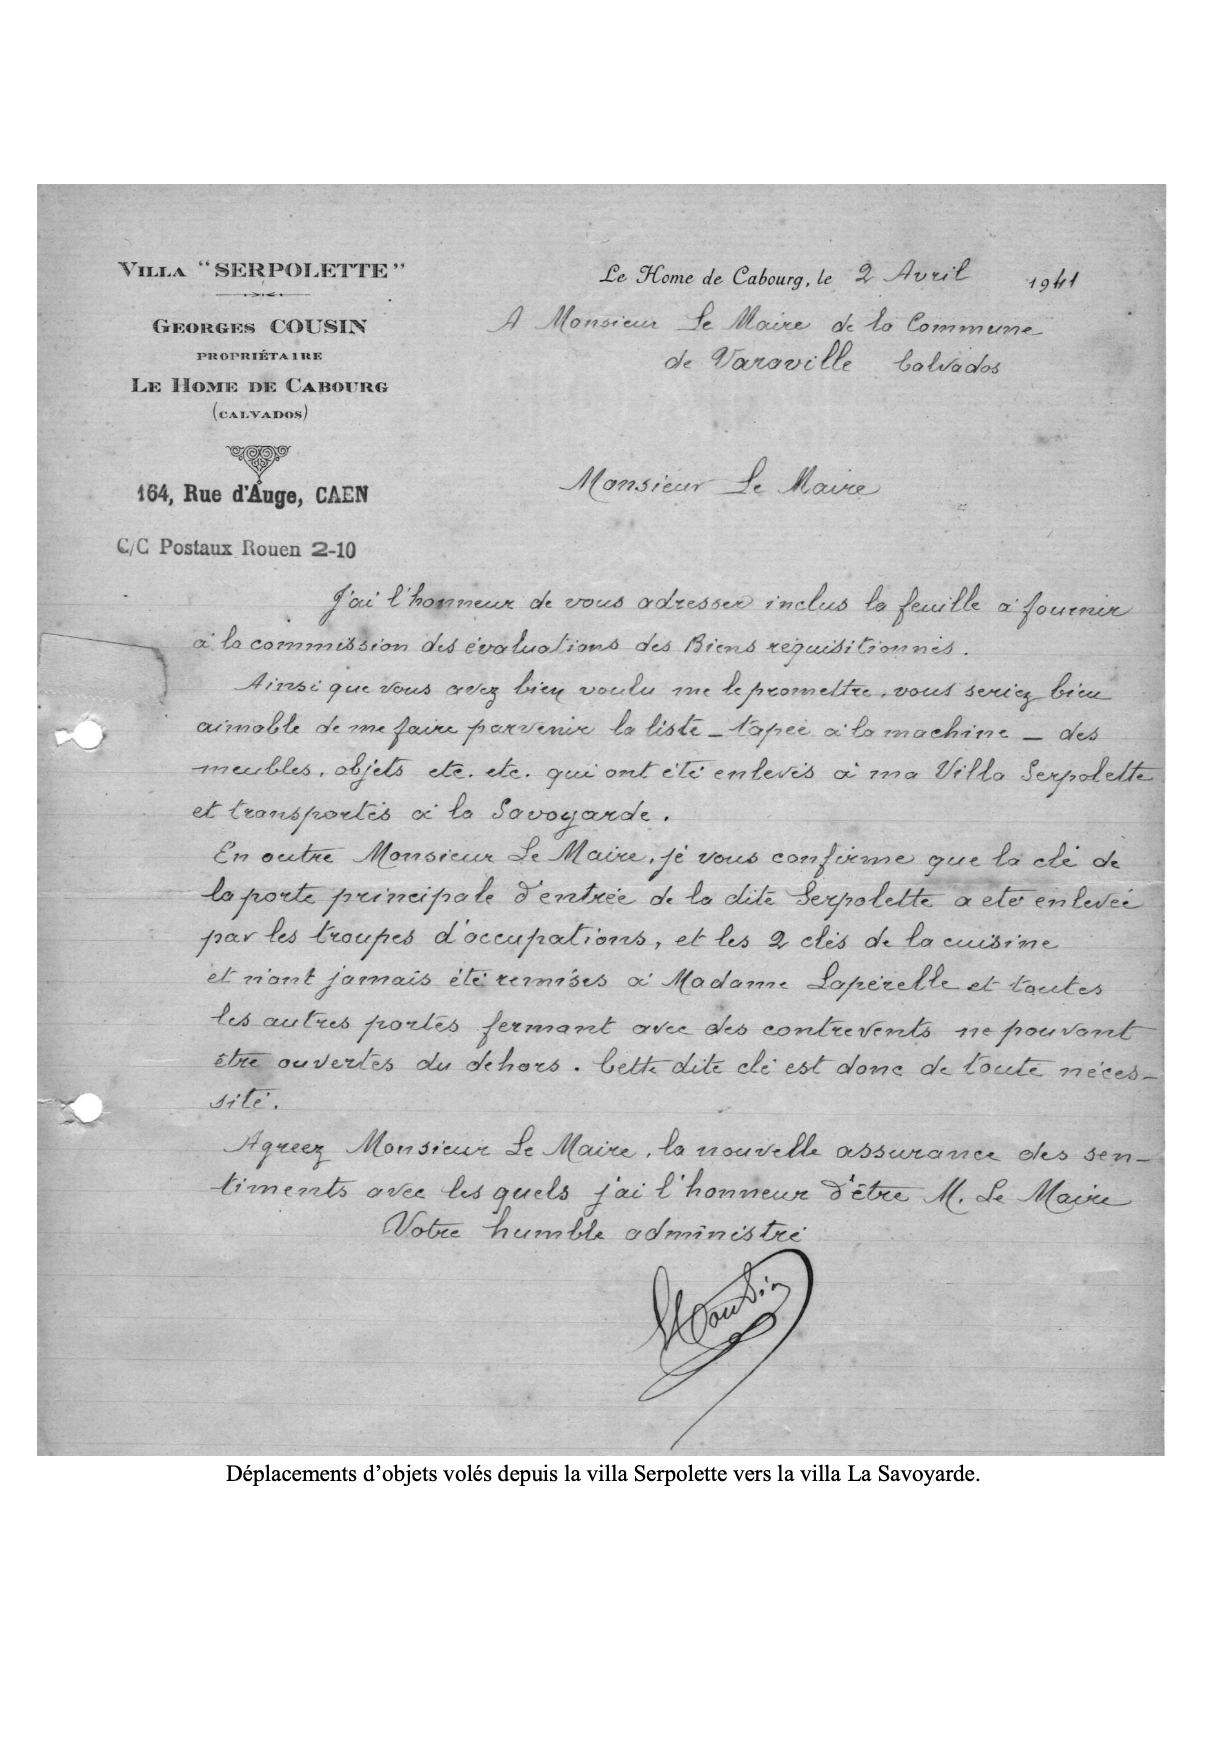 VILLA "SERPOLETTE"
GEORGES COUSIN
PROPRIÉTAIRE
LE HOME DE CABOURG
(CALVADOS)
164, Rue d'Auge, CAEN
C/C Postaux Rouen 2-10
Le Home de Cabourg, le 2 Avril 1941
A Monsieur Le Maire de la Commune
de Varaville Calvados
Monsieur Le Maire
J'ai l'honneur de vous adresser inclus la feuille à fournir
à la commission des évaluations des Biens réquisitionnés.
Ainsi que vous avez bien voulu me le promettre, vous seriez bien
aimable de me faire parvenir la liste – tapée à la machine – des
meubles, objets etc. etc. qui ont été enlevés à ma Villa Serpolette
et transportés à la Savoyarde.
En outre Monsieur Le Maire, je vous confirme que la clé de
la porte principale d'entrée de la dite Serpolette a été enlevée
par les troupes d'occupations, et les 2 clés de la cuisine
et n'ont jamais été remises à Madame Laperelle et toutes
les autres portes fermant avec des contrevents ne pouvant
être ouvertes du dehors. Cette dite clé est donc de toute néces-
sité.
Agréez Monsieur Le Maire, la nouvelle assurance des sen-
timents avec les quels j'ai l'honneur d'être M. Le Maire
Votre humble administré
GCousin
Déplacements d'objets volés depuis la villa Serpolette vers la villa La Savoyarde.